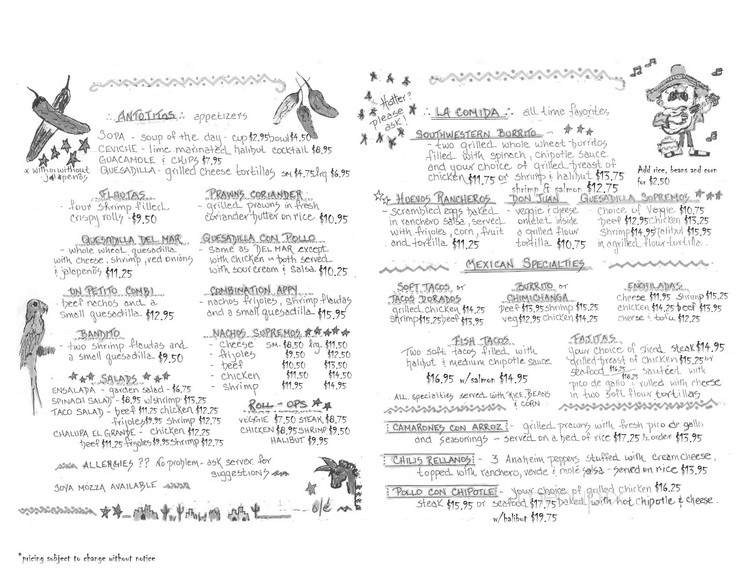 ∴ ANTOJITOS ∴ appetizers
SOPA - soup of the day - cup $2.95 bowl $4.50
CEVICHE - lime marinated halibut cocktail $8.95
GUACAMOLE & CHIPS $7.95
QUESADILLA - grilled cheese tortillas sm $4.75 lg $6.95
x with or without jalapeños
FLAUTAS
- four shrimp filled
crispy rolls $9.50
PRAWNS CORIANDER
- grilled prawns in fresh
coriander butter on rice $10.95
QUESADILLA DEL MAR
- whole wheat quesadilla
with cheese, shrimp, red onions
& jalapeños $11.25
QUESADILLA CON POLLO
- same as DEL MAR except
with chicken - both served
with sour cream & salsa $10.25
UN PETITO COMBI
- beef nachos and a
small quesadilla $12.95
COMBINATION APPY
- nachos frijoles, shrimp flautas
and a small quesadilla $15.95
BANDITO
- two shrimp flautas and
a small quesadilla $9.50
NACHOS SUPREMOS
- cheese sm. $8.50 lg. $11.50
- frijoles $9.50 $12.50
- beef $10.50 $13.50
- chicken $11.50 $14.50
- shrimp $11.95 $14.95
SALADS
ENSALADA - garden salad - $6.75
SPINACH SALAD - $8.95 w/shrimp $13.25
TACO SALAD - beef $11.25 chicken $12.25
frijoles $9.95 shrimp $12.75
CHALUPA EL GRANDE - chicken $12.25
beef $11.25 frijoles $9.95 shrimp $12.75
ROLL-OPS
VEGGIE $7.50 STEAK $8.75
CHICKEN $8.95 SHRIMP $9.50
HALIBUT $9.95
ALLERGIES ?? No problem - ask server for
suggestions
SOYA MOZZA AVAILABLE
olé
Hotter?
Please
ask
∴ LA COMIDA ∴ all time favorites
SOUTHWESTERN BURRITO -
- two grilled whole wheat burritos
filled with spinach, chipotle sauce
and your choice of grilled breast of
chicken $11.75 or shrimp & halibut $13.75
shrimp & salmon $12.75
Add rice, beans and corn
for $2.50
HUEVOS RANCHEROS
- scrambled eggs baked
in ranchero salsa, served
with frijoles, corn, fruit
and tortilla $11.25
DON JUAN
- veggie & cheese
omelet inside
a grilled flour
tortilla $10.75
QUESADILLA SUPREMOS
choice of Veggie $10.75
beef $12.95 chicken $13.25
shrimp $14.95 halibut $15.95
in a grilled flour tortilla.
MEXICAN SPECIALTIES
SOFT TACOS, or
TACOS DORADOS
grilled chicken $14.25
shrimp $15.25 beef $13.95
BURRITO or
CHIMICHANGA
beef $13.95 shrimp $15.25
veg $12.95 chicken $14.25
ENCHILADAS
cheese $11.95 shrimp $15.25
chicken $14.25 beef $13.95
cheese & tofu $12.25
FISH TACOS
Two soft tacos filled with
halibut & medium chipotle sauce
$16.95 w/salmon $14.95
ALL specialties served with RICE, BEANS
& CORN
FAJITAS
your choice of sliced steak $14.95
grilled breast of chicken $15.25 or
seafood $16.25 sauteed with
pico de gallo & rolled with cheese
in two soft flour tortillas
CAMARONES CON ARROZ - grilled prawns with fresh pico de gallo
and seasonings - served on a bed of rice $17.25 ½ order $13.95
CHILIS RELLANOS - 3 Anaheim peppers stuffed with cream cheese,
topped with ranchero, verde & molé salsa - served on rice $13.95
POLLO CON CHIPOTLE - your choice of grilled chicken $16.25
steak $15.95 or seafood $17.75 baked with hot chipotle & cheese.
w/halibut $19.75
*pricing subject to change without notice